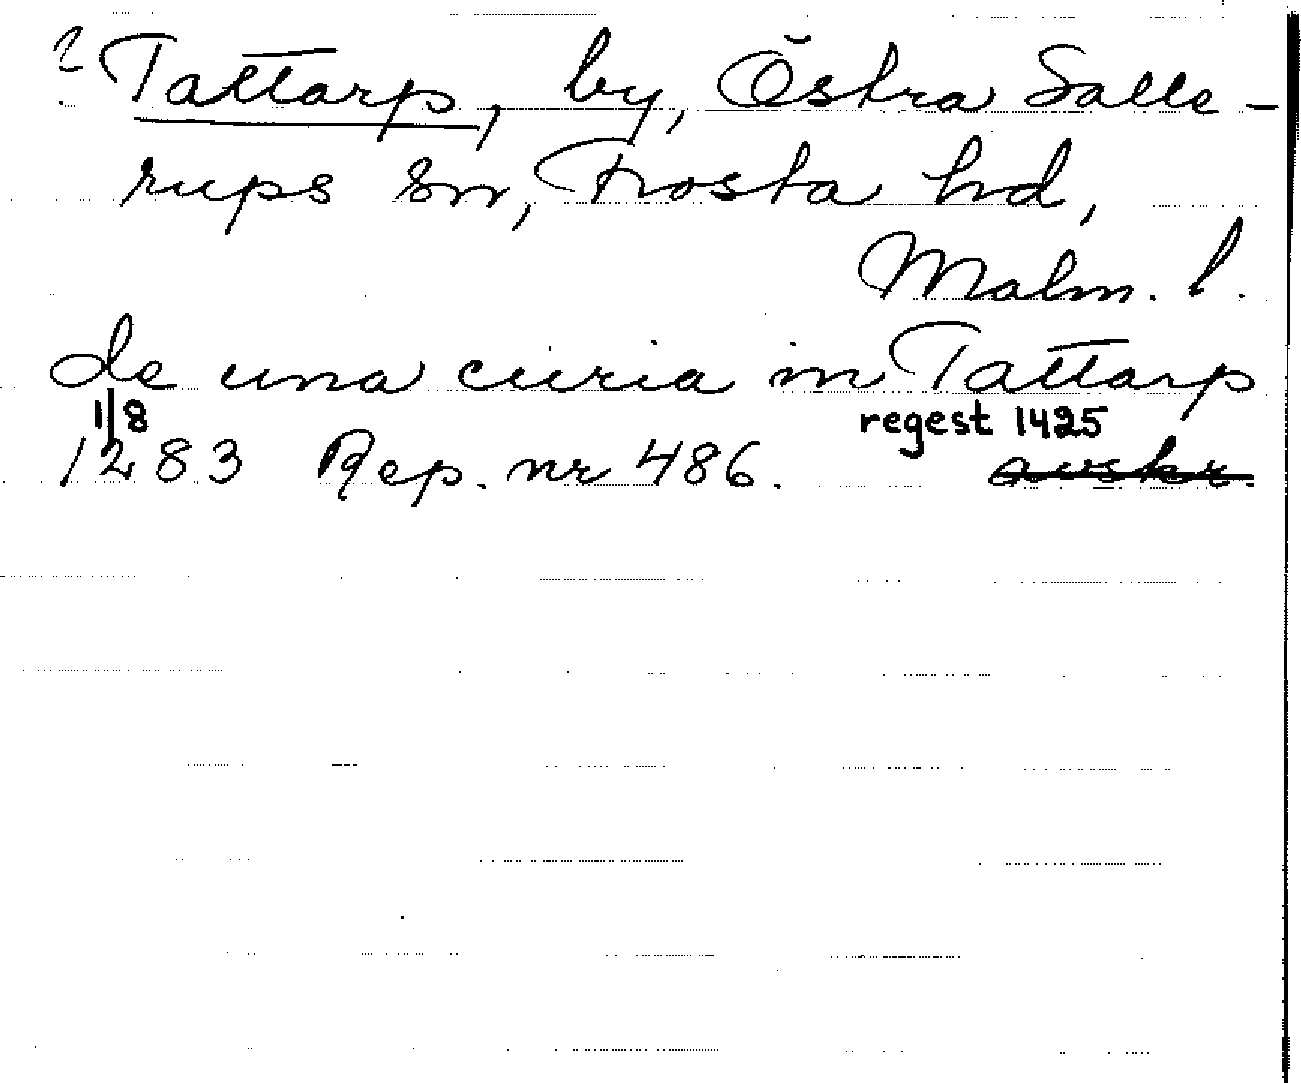 ? Tattarp, by, Östra Salle-
rups sn, Frosta hd,
Malm. l.
de una curia in Tattarp
1/8 regest 1425
1283 Rep. nr 486. avskr.